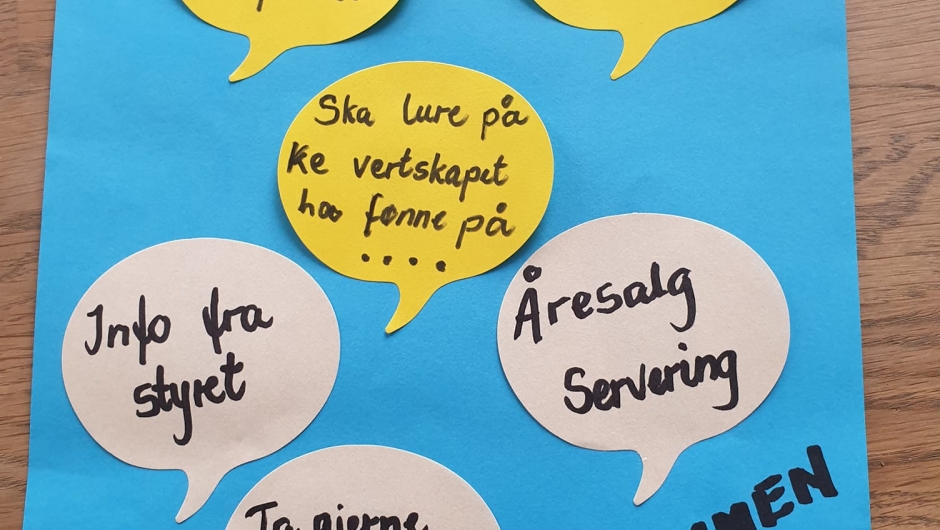 Ska lure på
ke vertskapet
har fønne på
....
Info fra
styret
Åresalg
Servering
Ta gjerne